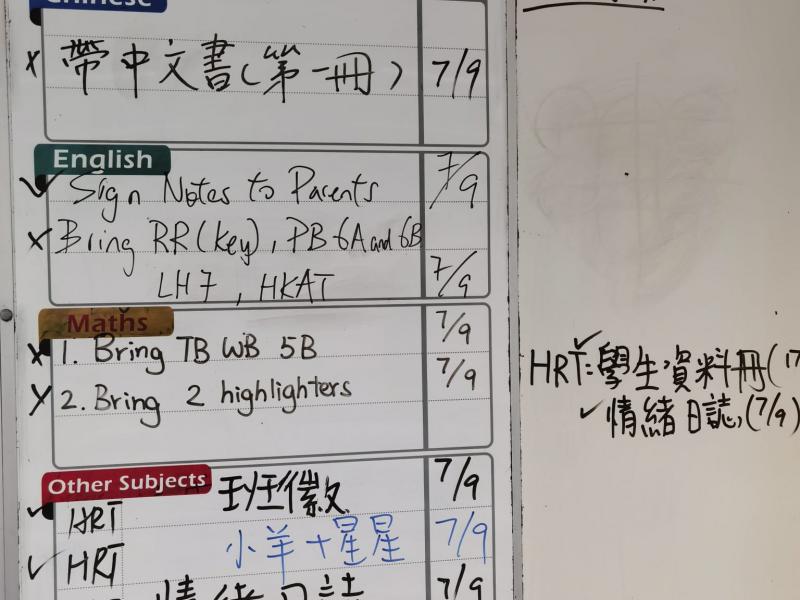 Chinese
x 帶中文書(第一冊) 7/9
English
✓ Sign Notes to Parents 7/9
x Bring RR(key), PB 6A and 6B
LH7, HKAT 7/9
Maths
x 1. Bring TB WB 5B 7/9
x 2. Bring 2 highlighters 7/9
Other Subjects
✓ HRT 班徽 7/9
✓ HRT 小羊+星星 7/9
情緒日誌 7/9
HRT: ✓學生資料冊(17
✓情緒日誌,(7/9)